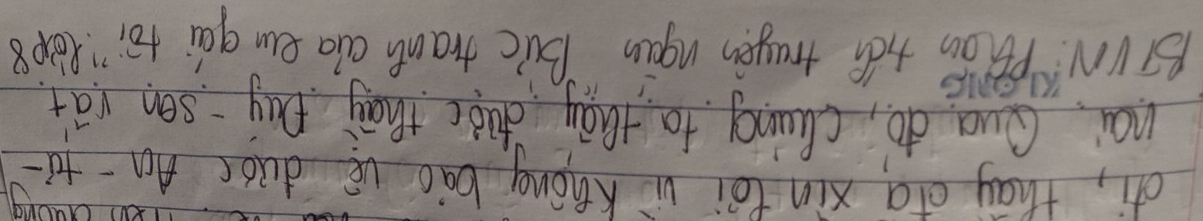 đi, thầy đã xin lỗi vì không bảo vệ được An - tư -
nai. Qua đó, chúng ta thấy được thầy Đuy - sen rất
KLONG
BTVN: Phân tích truyện ngắn "Bức tranh của em gái tôi" lớp 8